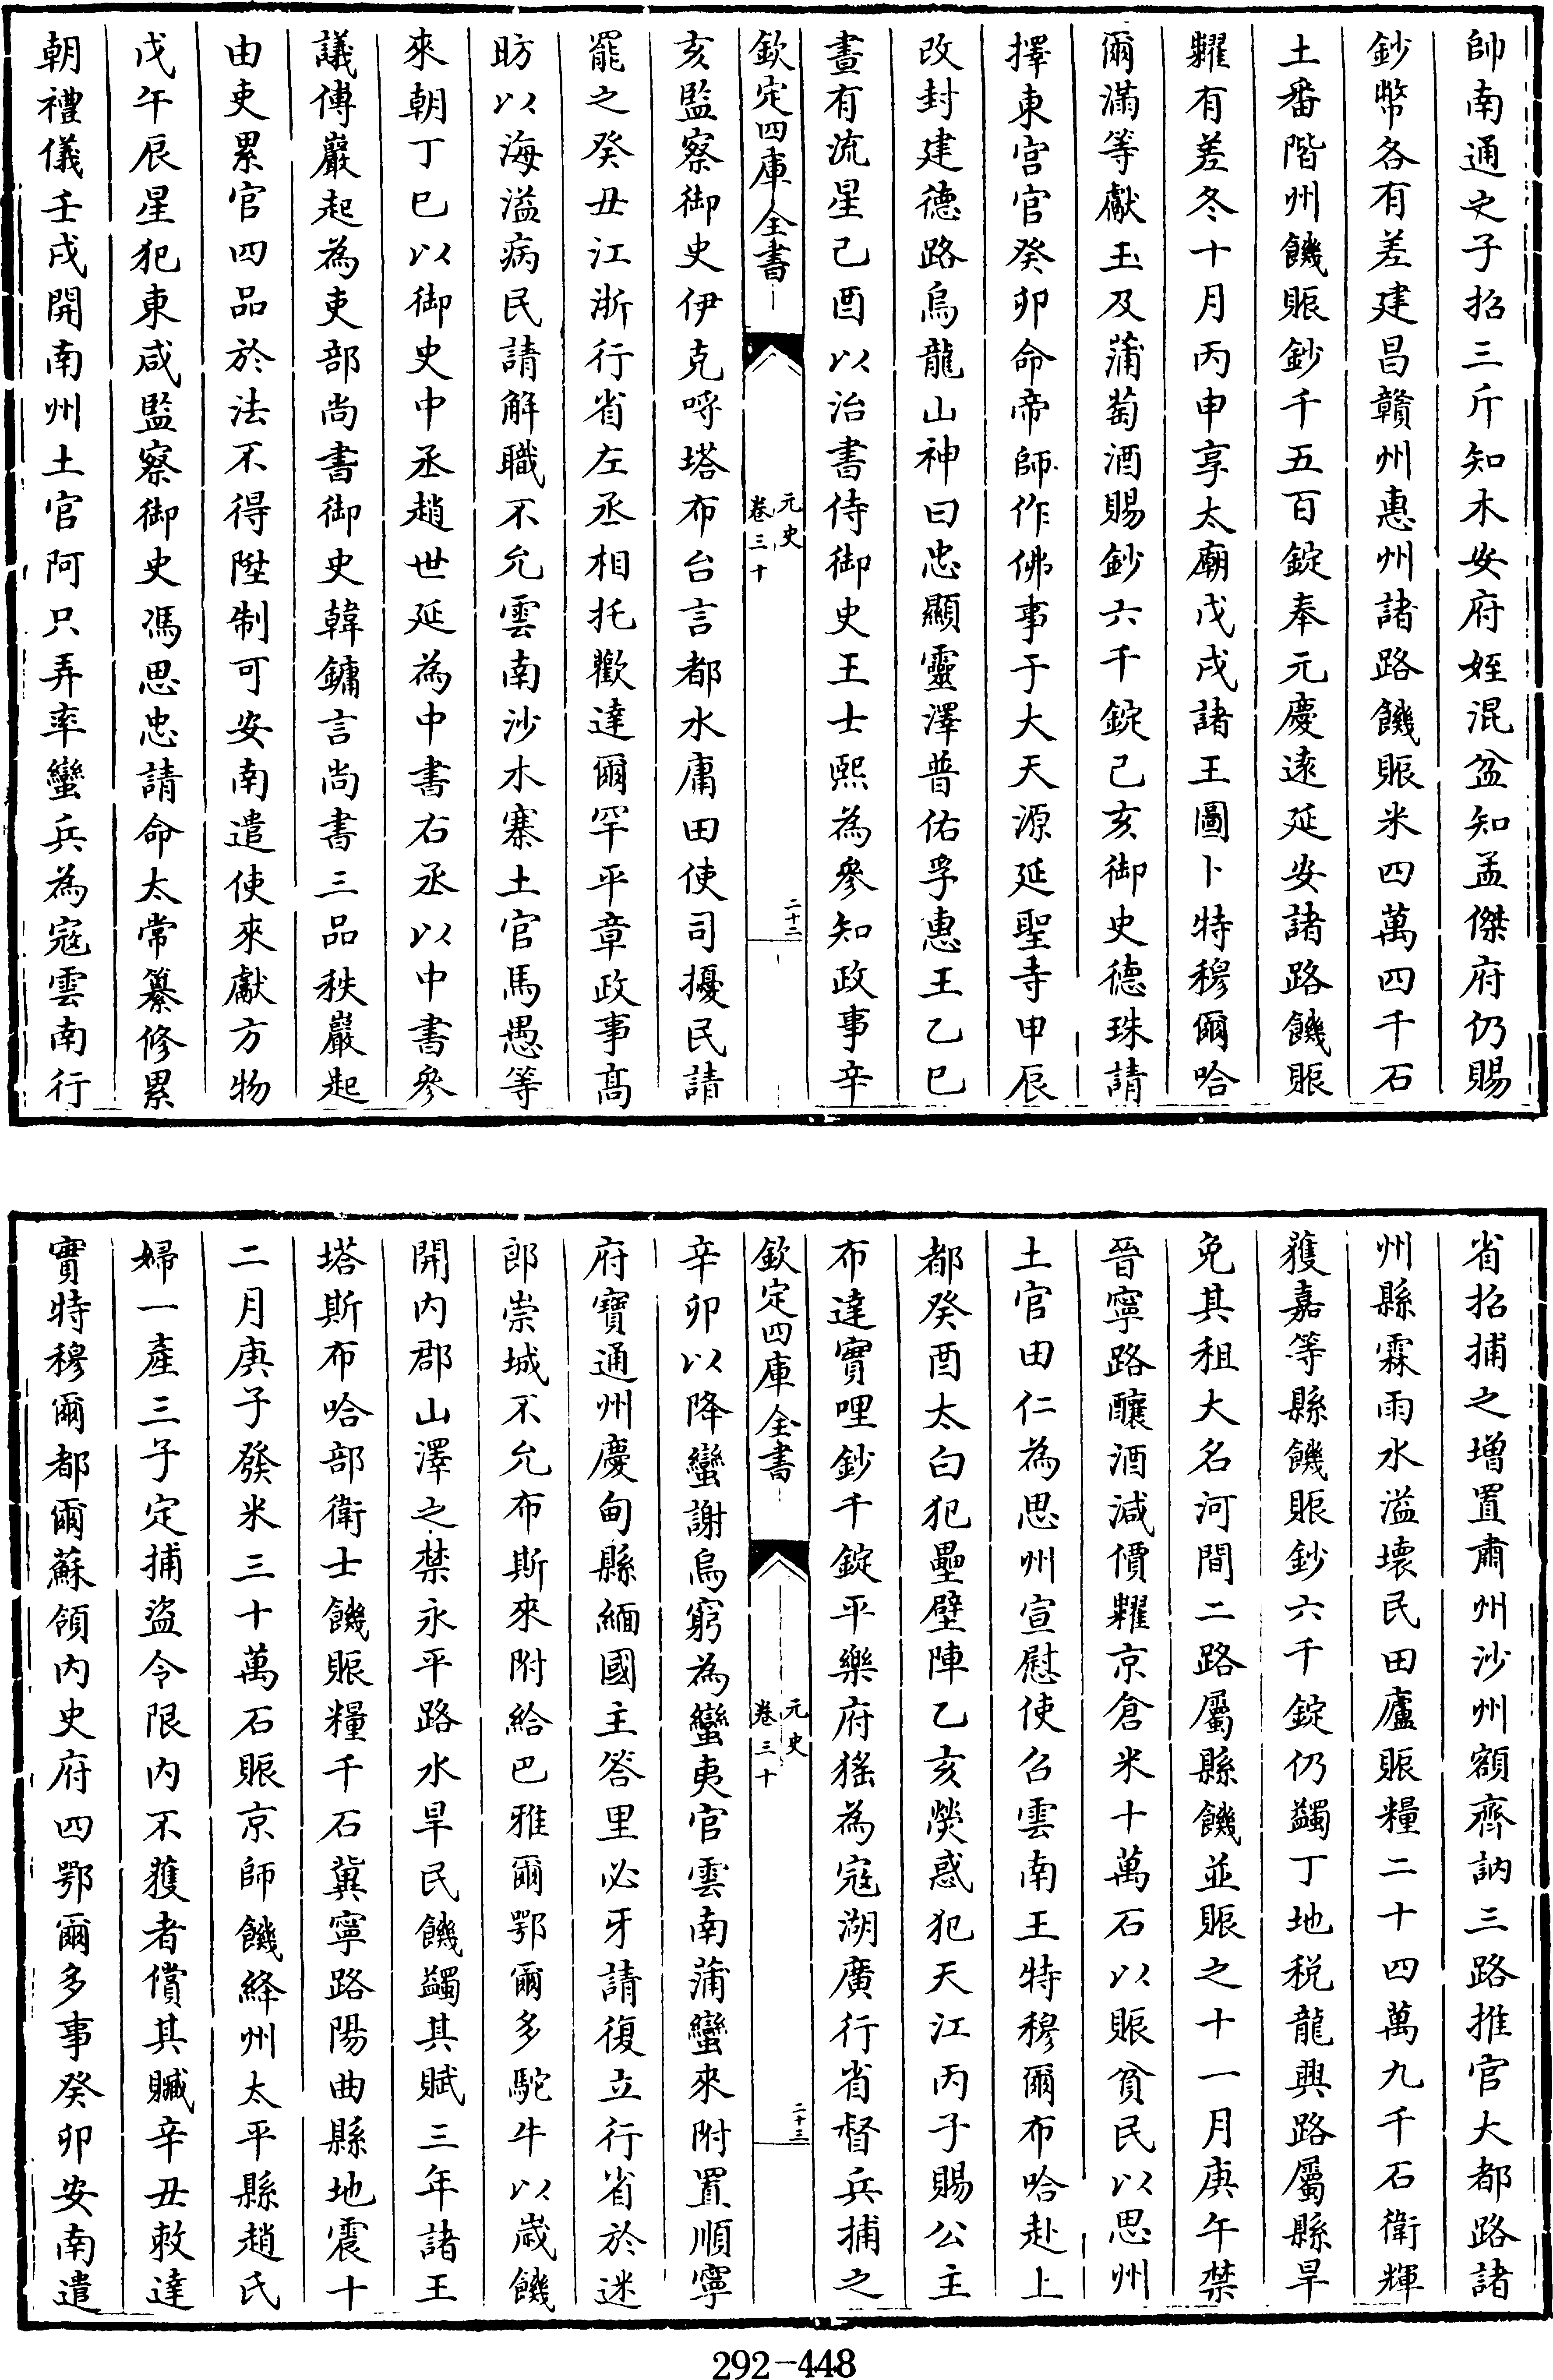 帥南通之子招三斤知木安府姪混盆知孟傑府仍賜
鈔幣各有差建昌贛州惠州諸路饑賑米四萬四千石
土番階州饑賑鈔千五百錠奉元慶遠延安諸路饑賑
糶有差冬十月丙申享太廟戊戌諸王圖卜特穆爾哈
爾滿等獻玉及蒲萄酒賜鈔六千錠己亥御史德珠請
擇東宫官癸卯命帝師作佛事于大天源延聖寺甲辰
改封建德路烏龍山神曰忠顯靈澤普佑孚惠王乙巳
晝有流星己酉以治書侍御史王士熙為參知政事辛
欽定四庫全書
元史
卷三十
二十二
亥監察御史伊克哷塔布台言都水庸田使司擾民請
罷之癸丑江浙行省左丞相托歡達爾罕平章政事高
昉以海溢病民請解職不允雲南沙木寨土官馬愚等
來朝丁巳以御史中丞趙世延為中書右丞以中書參
議傅巖起為吏部尚書御史韓鏞言尚書三品秩巖起
由吏累官四品於法不得陞制可安南遣使來獻方物
戊午辰星犯東咸監察御史馮思忠請命太常纂修累
朝禮儀壬戌開南州土官阿只弄率蠻兵為寇雲南行
省招捕之增置肅州沙州額齊訥三路推官大都路諸
州縣霖雨水溢壊民田廬賑糧二十四萬九千石衛輝
獲嘉等縣饑賑鈔六千錠仍蠲丁地税龍興路屬縣旱
免其租大名河間二路屬縣饑並賑之十一月庚午禁
晉寧路釀酒減價糶京倉米十萬石以賑貧民以思州
土官田仁為思州宣慰使召雲南王特穆爾布哈赴上
都癸酉太白犯壘壁陣乙亥熒惑犯天江丙子賜公主
布達實哩鈔千錠平樂府猺為寇湖廣行省督兵捕之
欽定四庫全書
元史
卷三十
二十三
辛卯以降蠻謝烏窮為蠻夷官雲南蒲蠻來附置順寧
府寶通州慶甸縣緬國主答里必牙請復立行省於迷
郎崇城不允布斯來附給巴雅爾鄂爾多駝牛以嵗饑
開内郡山澤之禁永平路水旱民饑蠲其賦三年諸王
塔斯布哈部衛士饑賑糧千石冀寧路陽曲縣地震十
二月庚子發米三十萬石賑京師饑絳州太平縣趙氏
婦一產三子定捕盜令限内不獲者償其贓辛丑敕達
實特穆爾都爾蘇領内史府四鄂爾多事癸卯安南遣
292-448